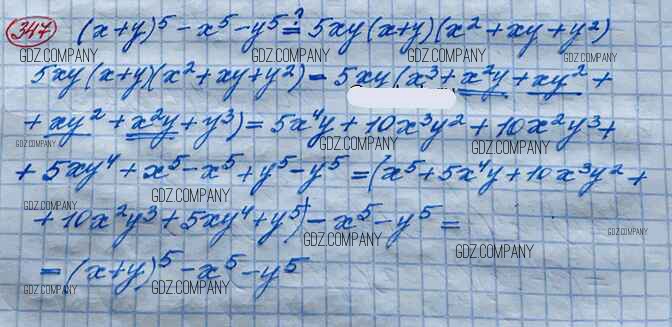 347 (x+y)⁵ - x⁵ - y⁵ ≟ 5xy(x+y)(x²+xy+y²)
GDZ.COMPANY GDZ.COMPANY GDZ.COMPANY
5xy(x+y)(x²+xy+y²) = 5xy(x³+x²y+xy²+
+xy²+x²y+y³) = 5x⁴y+10x³y²+10x²y³+
GDZ.COMPANY GDZ.COMPANY GDZ.COMPANY
+5xy⁴+x⁵-x⁵+y⁵-y⁵ = (x⁵+5x⁴y+10x³y²+
GDZ.COMPANY GDZ.COMPANY
+10x²y³+5xy⁴+y⁵)-x⁵-y⁵ =
GDZ.COMPANY GDZ.COMPANY GDZ.COMPANY
=(x+y)⁵-x⁵-y⁵
GDZ.COMPANY GDZ.COMPANY